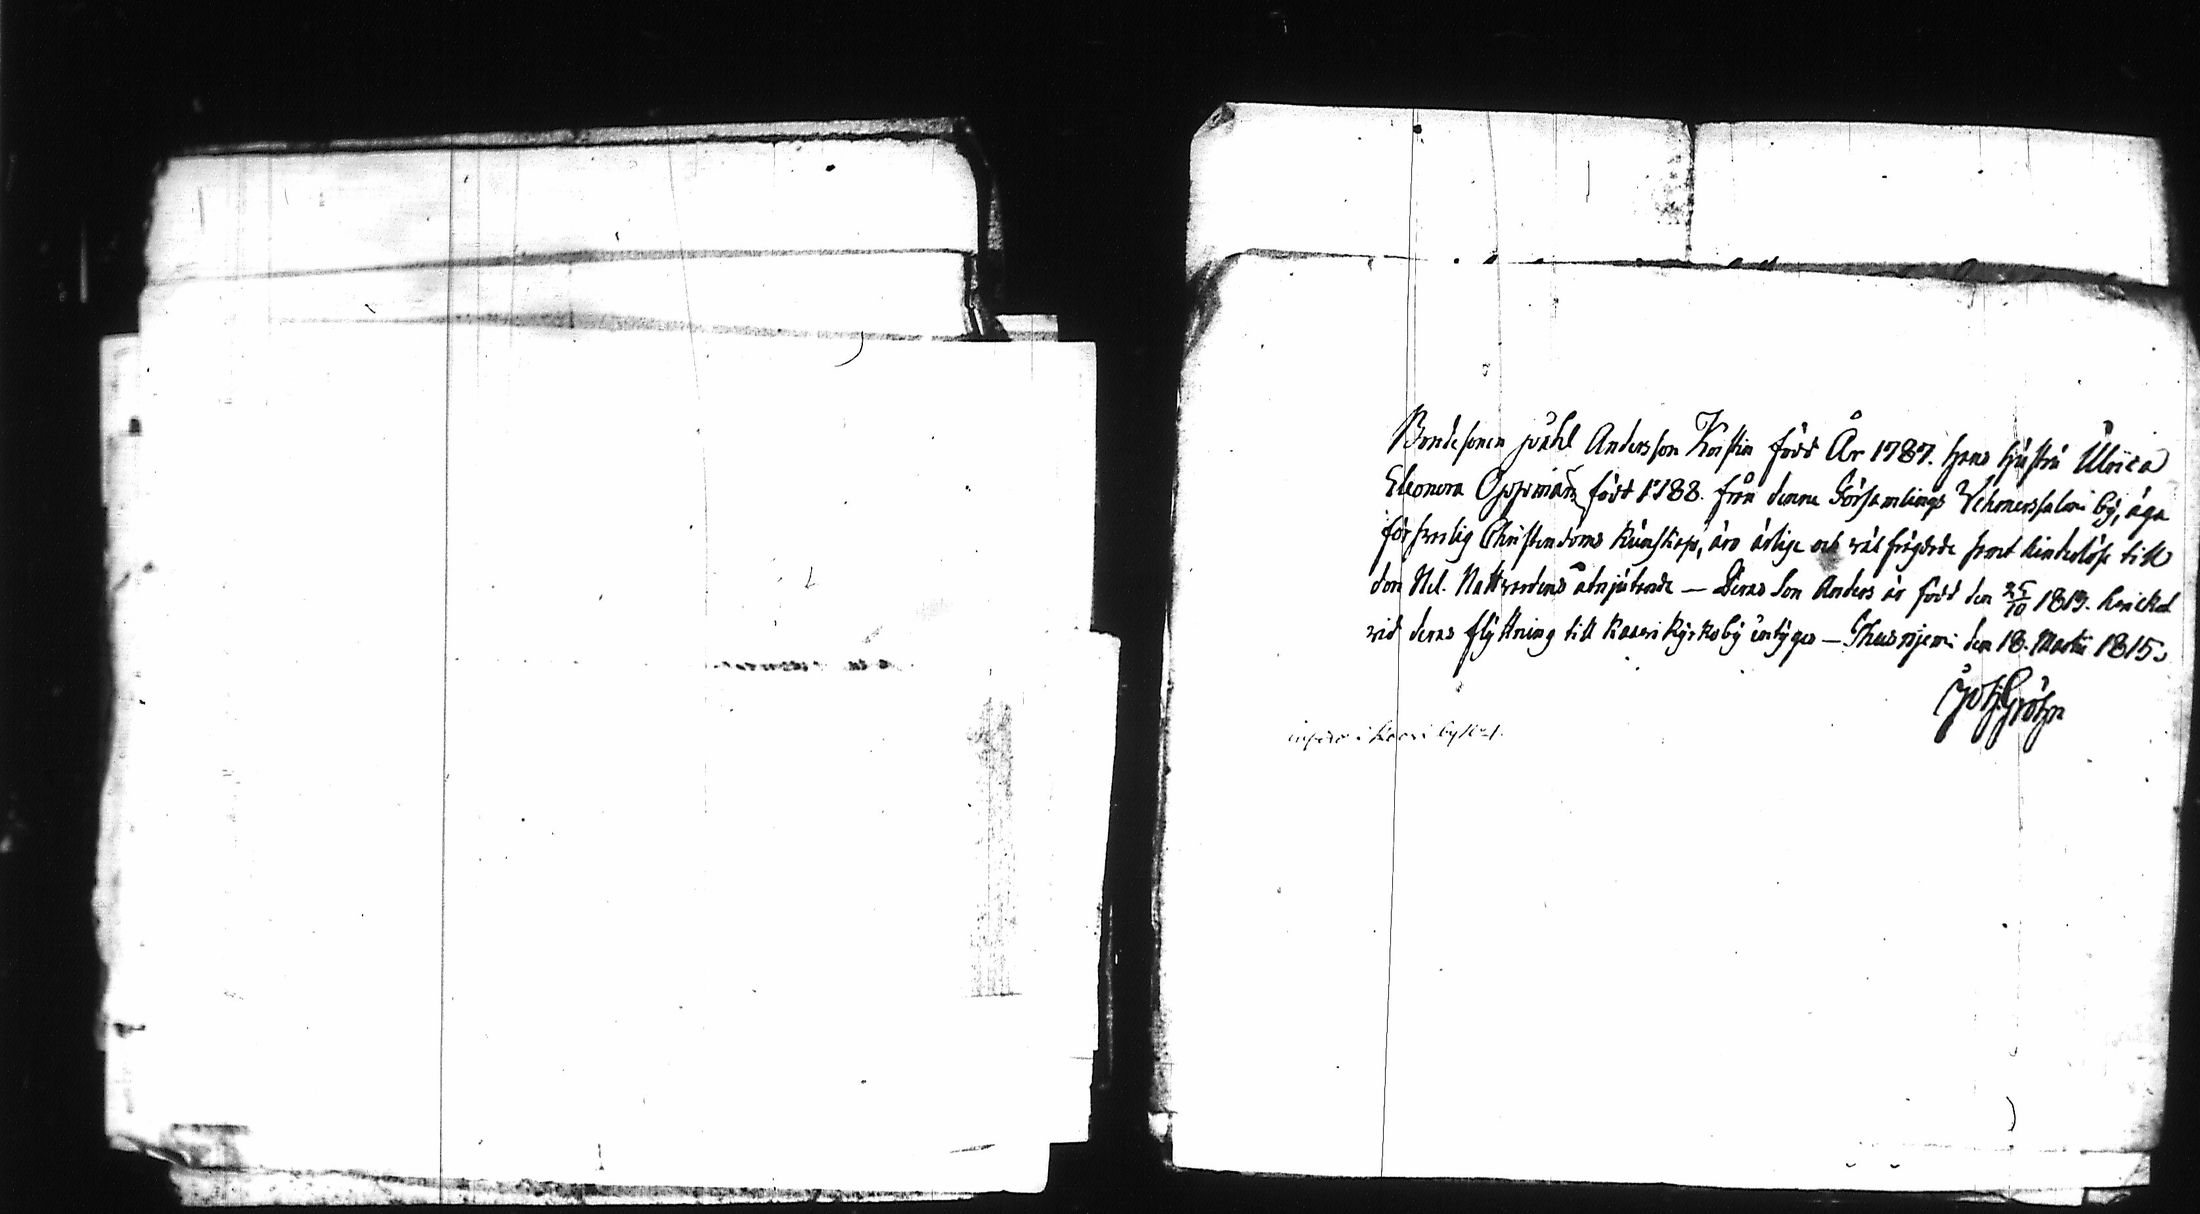 Bondesonen Påhl Andersson Korpin född År 1787. hans hustru Ulrica
Eleonora Öppman född 1788. från denne Församlings Vehmersalmi by, äga
förswarlig Christendoms kunskap, äro ärlige och välfrägdade samt hinderlöse till
den Hel. Nattvardens åtnjutande — Deras Son Anders är född den 25/10 1813. hvilket
vid deras flyttning till Kaavi Kyrkoby intygas — Thusniemi den 18. Martii 1815.
Joh. Gröhn
i Kaavi by